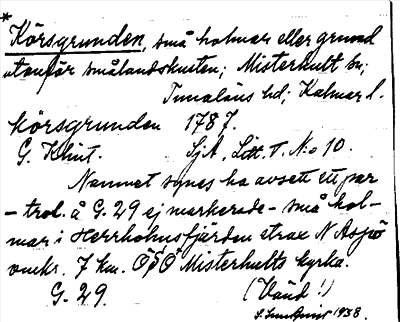 *
Körsgrunden, små holmar eller grund
utanför smålandskusten; Misterhult sn;
Tunaläns hd; Kalmar l.
Körsgrunden 1787.
G. Klint. SjA, Litt. T. No 10.
Namnet synes ha avsett ett par
– trol. å G. 29 ej markerade – små hol-
mar i Herrhohusfjärden strax N Aspö
omkr. 7 km. OSO Misterhults kyrka.
G. 29. (Vänd!)
1938.